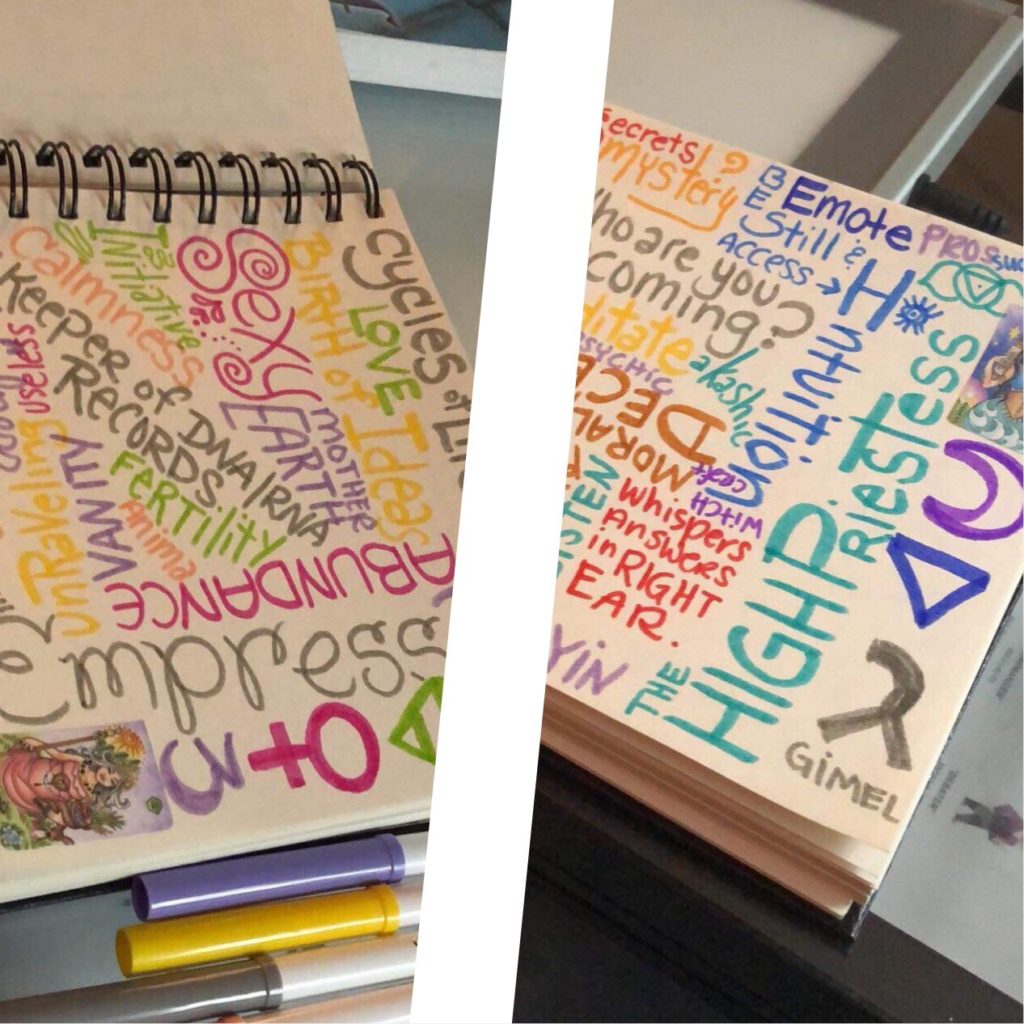 calmness
Is
INitiative
Sexy
BIRTH of Ideas
Cycles of
LOVE
Keeper of DNA/RNA
RECORDS
EARTH
MOTHER
useless
unRaveling
VANITY
FERTility
anima
ABUNDANCE
Empress
3
Secrets! ?
mystery
BE
Still &
ACCESS →
Emote
PROS
Who are you
coming?
H
INtuition
PSYCHIC
akashic
DEC
MORAL
WITCH
craft
Whispers
Answers
in RIGHT
EAR.
YIN
THE
HIGH PRIESTess
GIMEL